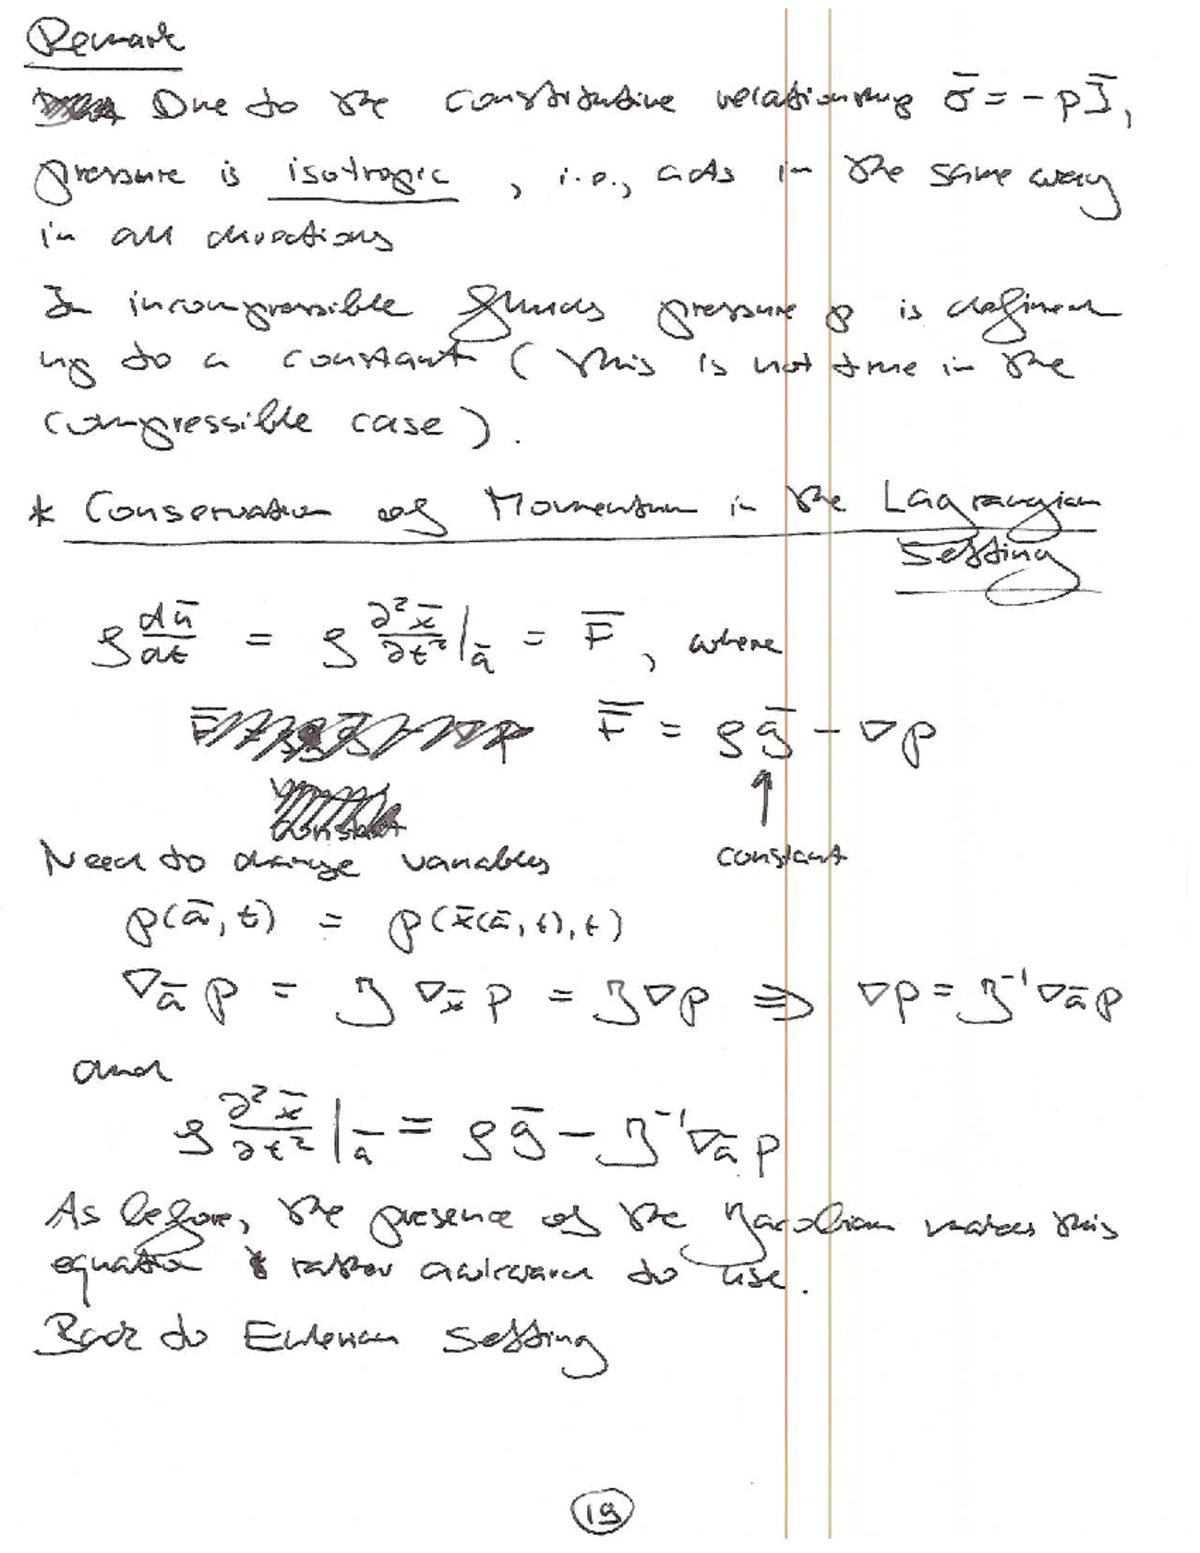 Remark
Due to the constitutive relationship σ̄ = - p Ī,
pressure is isotropic, i.e., acts in the same way
in all directions
In incompressible fluids pressure p is defined
up to a constant (this is not true in the
compressible case).
* Conservation of Momentum in the Lagrangian
Setting
ρ dū/dt = ρ ∂²x̄/∂t² |ā = F̄, where
F̄ = ρ ḡ - ∇p
constant
Need to change variables
p(ā, t) = p(x̄(ā, t), t)
∇ā p = J ∇x̄ p = J ∇p ⇒ ∇p = J⁻¹ ∇ā p
and
ρ ∂²x̄/∂t² |ā = ρ ḡ - J⁻¹ ∇ā p
As before, the presence of the Jacobian makes this
equation rather awkward to use.
Back to Eulerian Setting
19